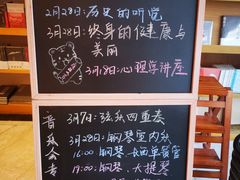 2月28日:历史的听觉
3月28日:终身的健康与
美丽
3月18日:心理学讲座
音乐会专
3月7日:弦乐四重奏
3月28日:钢琴室内乐
16:00 钢琴
19:00: 钢琴、大提琴